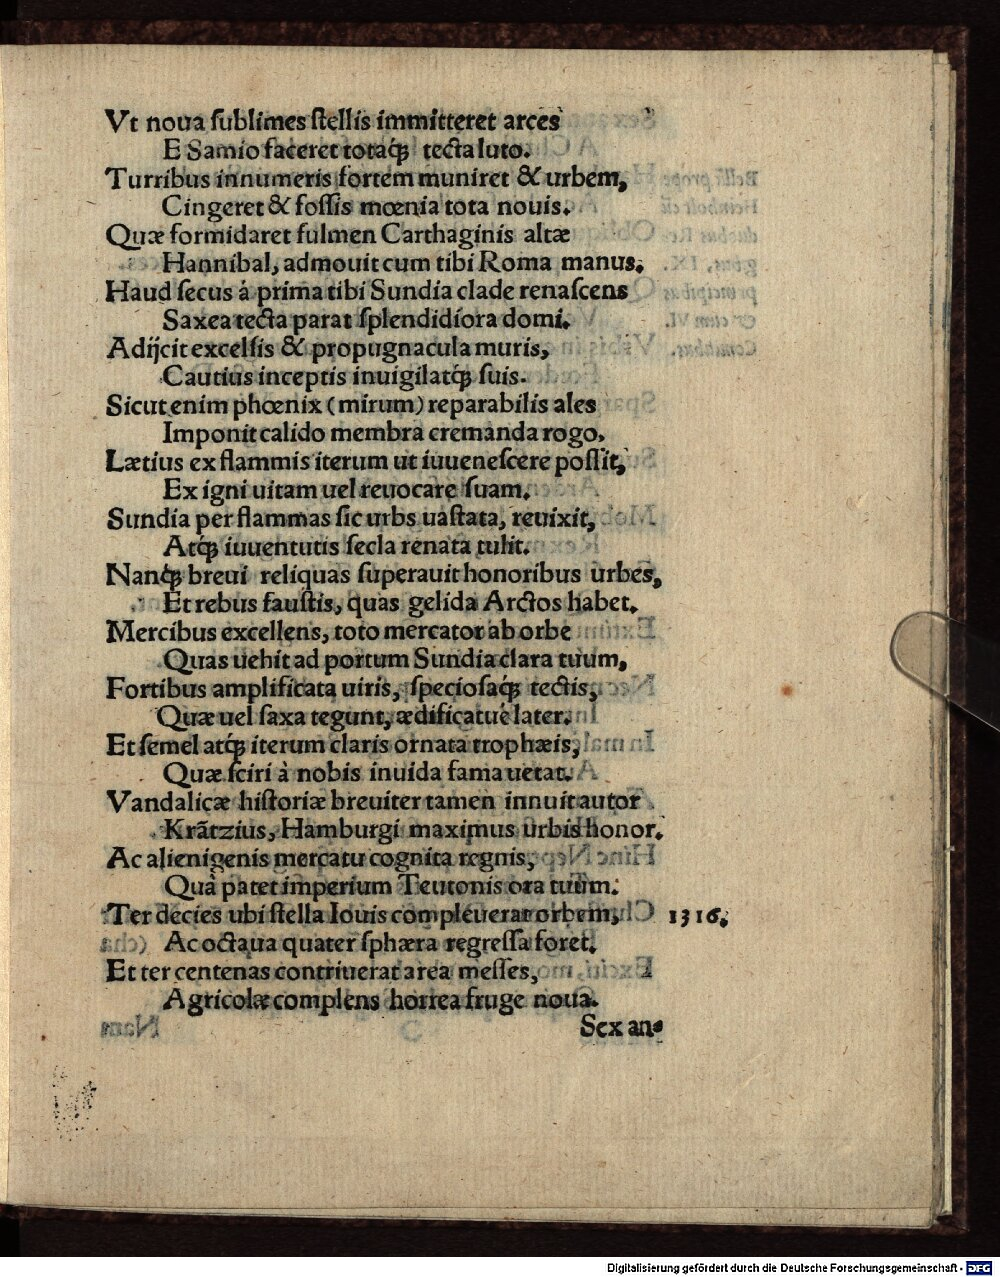 Vt noua ſublimes ſtellis immitteret arces
E Samio faceret totaq́ꝫ tecta luto.
Turribus innumeris fortem muniret & urbem,
Cingeret & foſſis mœnia tota nouis.
Quæ formidaret fulmen Carthaginis altæ
Hannibal, admouit cum tibi Roma manus.
Haud ſecus á prima tibi Sundia clade renaſcens
Saxea tecta parat ſplendidiora domi.
Adijcit excelſis & propugnacula muris,
Cautius inceptis inuigilatq́ꝫ ſuis.
Sicut enim phœnix (mirum) reparabilis ales
Imponit calido membra cremanda rogo.
Lætius ex flammis iterum ut iuueneſcere poſſit,
Ex igni uitam uel reuocare ſuam.
Sundia per flammas ſic urbs uaſtata, reuixit,
Atq́ꝫ iuuentutis ſecla renata tulit.
Nanq́ꝫ breui reliquas ſuperauit honoribus urbes,
Et rebus fauſtis, quas gelida Arctos habet.
Mercibus excellens, toto mercator ab orbe
Quas uehit ad portum Sundia clara tuum,
Fortibus amplificata uiris, ſpecioſaq́ꝫ tectis,
Quæ uel ſaxa tegunt, ædificatue later.
Et ſemel atq́ꝫ iterum claris ornata trophæis,
Quæ ſciri à nobis inuida fama uetat.
Vandalicæ hiſtoriæ breuiter tamen innuit autor
Krãtzius, Hamburgi maximus urbis honor.
Ac alienigenis mercatu cognita regnis,
Quà patet imperium Teutonis ora tuum.
Ter decies ubi ſtella Iouis compleuerat orbem, 1316.
Ac octaua quater ſphæra regreſſa foret.
Et ter centenas contriuerat area meſſes,
Agricolæ complens horrea fruge noua.
Sex an⸗
Digitalisierung gefördert durch die Deutsche Forschungsgemeinschaft - DFG